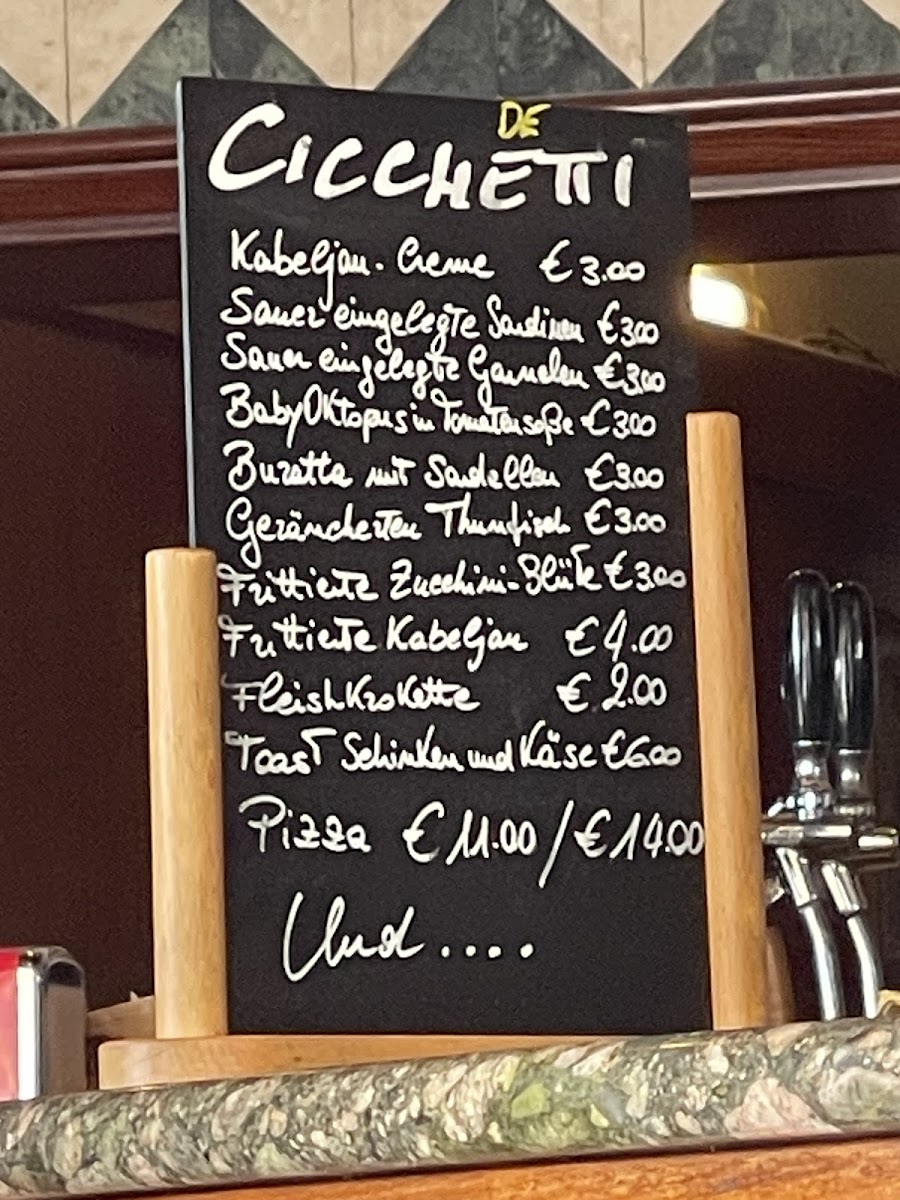 DE
CICCHETTI
Kabeljau-Creme €3.00
Sauer eingelegte Sardinen €3.00
Sauer eingelegte Garnelen €3.00
Baby Oktopus in Tomatensoße €3.00
Buratta mit Sardellen €3.00
Geräucherten Thunfisch €3.00
Frittierte Zucchini-Blüte €3.00
Frittierte Kabeljau €4.00
Fleish Krokette €2.00
Toast Schinken und Käse €6.00
Pizza €11.00/€14.00
Und....